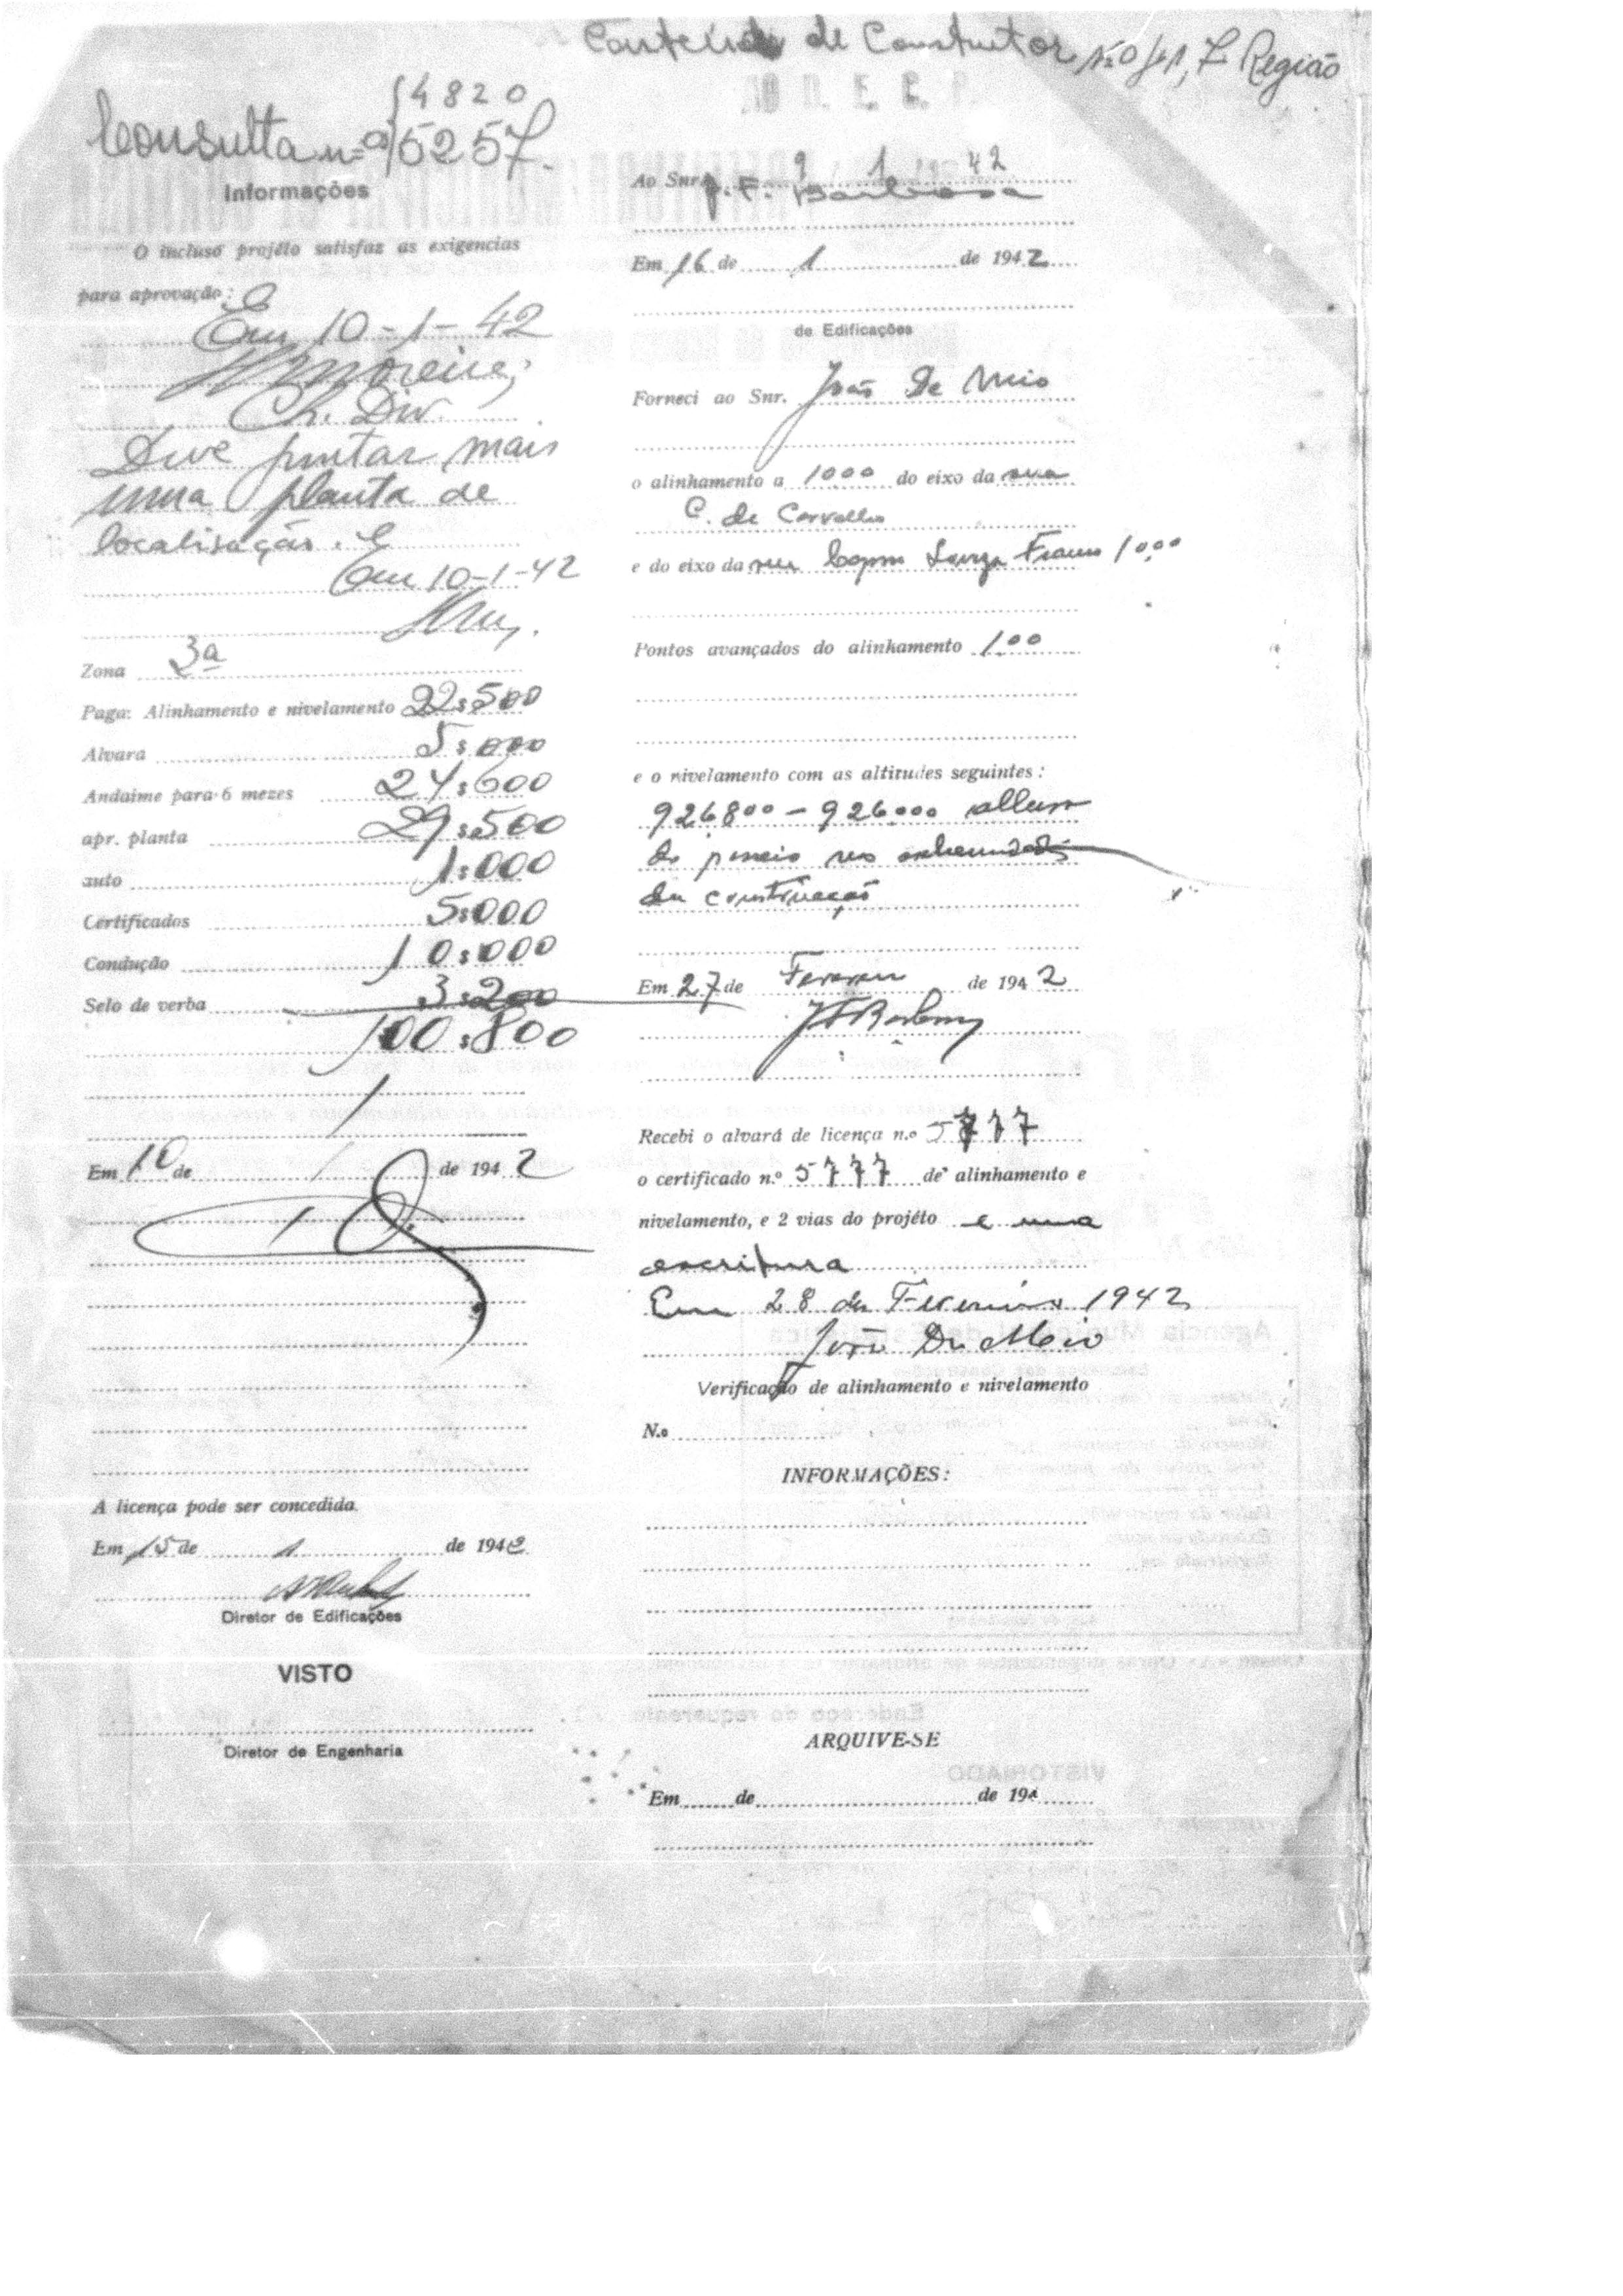 de Construtor Região
4820
Consulta nos 5257.
Informações
O incluso projéto satisfaz as exigencias
para aprovação:
Em 10-1-42
Moreira,
Ch. Div.
Deve juntar mais
uma planta de
localisação. E
Em 10-1-42
Zona 3a
Paga: Alinhamento e nivelamento 22$500
Alvara 5$000
Andaime para 6 mezes 24$600
apr. planta 29$500
auto 1$000
Certificados 5$000
Condução 10$000
Selo de verba 3$200
100$800
Em 10 de 1 de 1942
A licença pode ser concedida.
Em 15 de 1 de 1942
Diretor de Edificações
VISTO
Diretor de Engenharia
9 1 42
Ao Snr. J. F. Barbosa
Em 16 de 1 de 1942
de Edificações
Forneci ao Snr. João De Meio
o alinhamento a 1000 do eixo da rua
C. de Carvalho
e do eixo da rua 1000
Pontos avançados do alinhamento 1.00
e o nivelamento com as altitudes seguintes:
926.800 - 926.000
do passeio
da construcção
Em 27 de de 1942
JFBarbosa
Recebi o alvará de licença n.o 5777
o certificado n.o 5777 de alinhamento e
nivelamento, e 2 vias do projéto e uma
escritura
Em 28 de Fevereiro 1942
João De Meio
Verificação de alinhamento e nivelamento
N.o
INFORMAÇÕES:
ARQUIVE-SE
Em de de 194